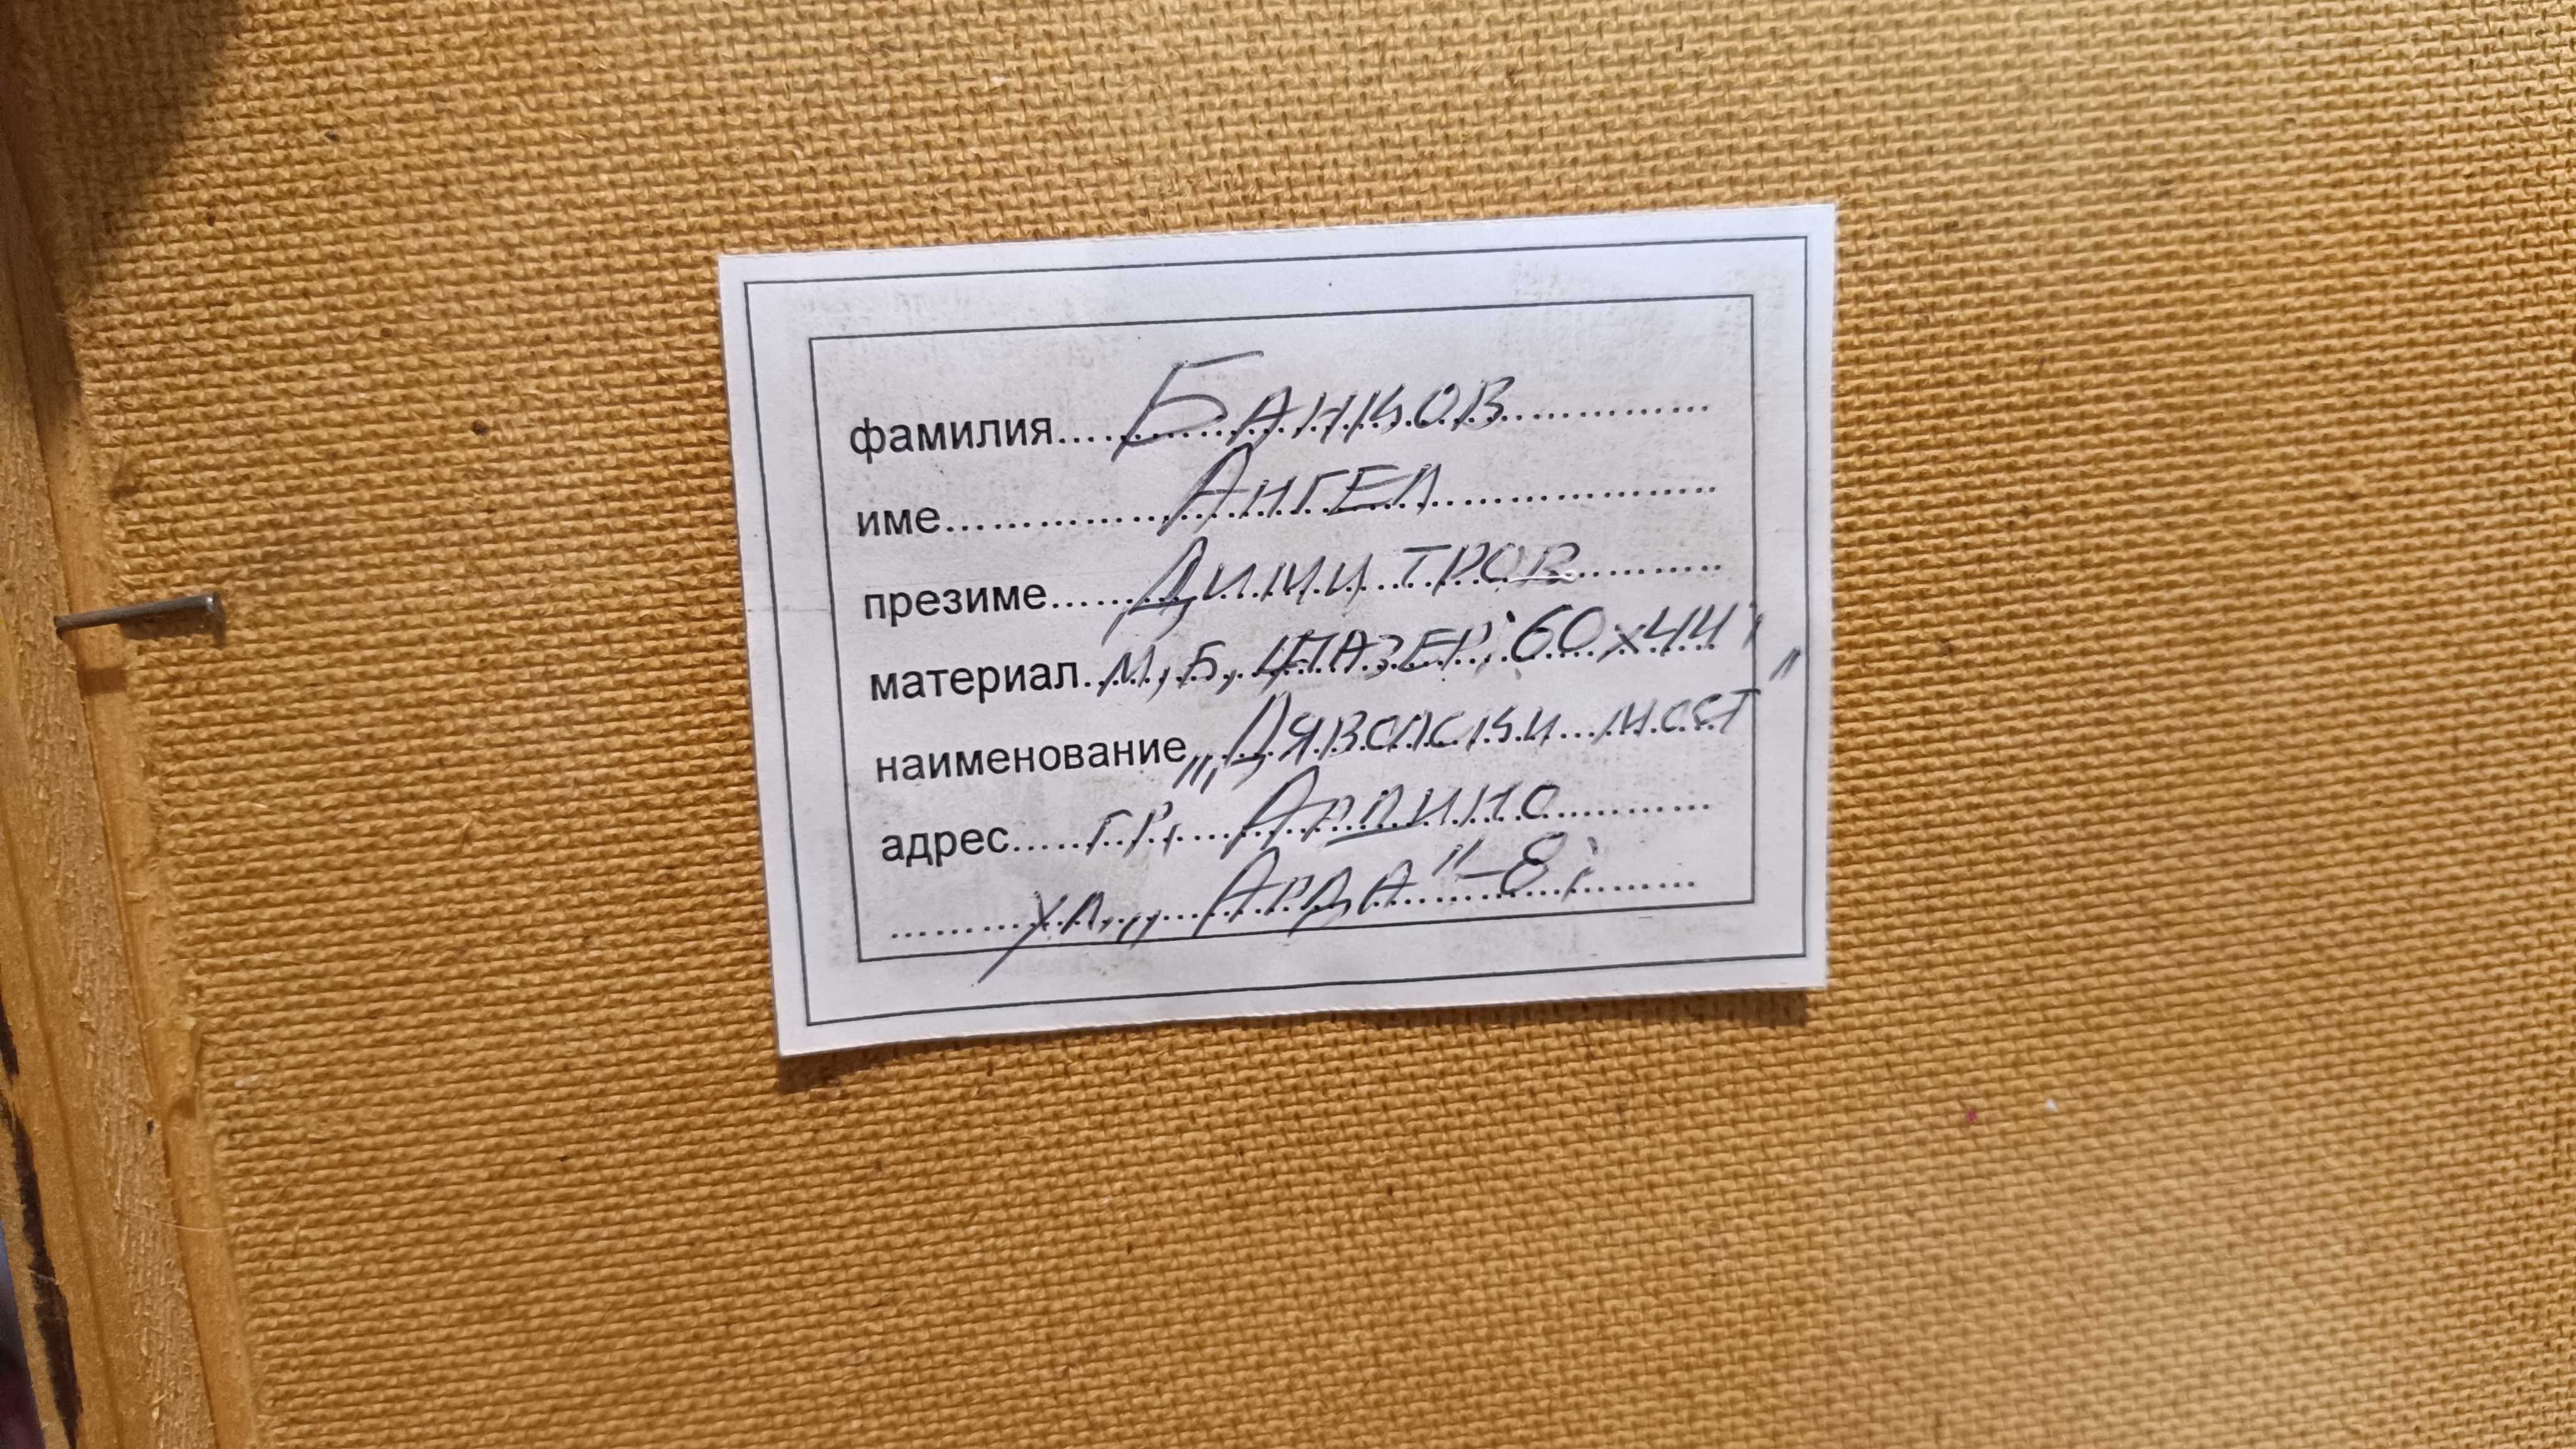 фамилия.... Банков
име........ Ангел
презиме.... Димитров
материал.. М, Б, 60x44;
наименование „Дяволски мост"
адрес..... гр. Ардино
ул. „Арда"-8;